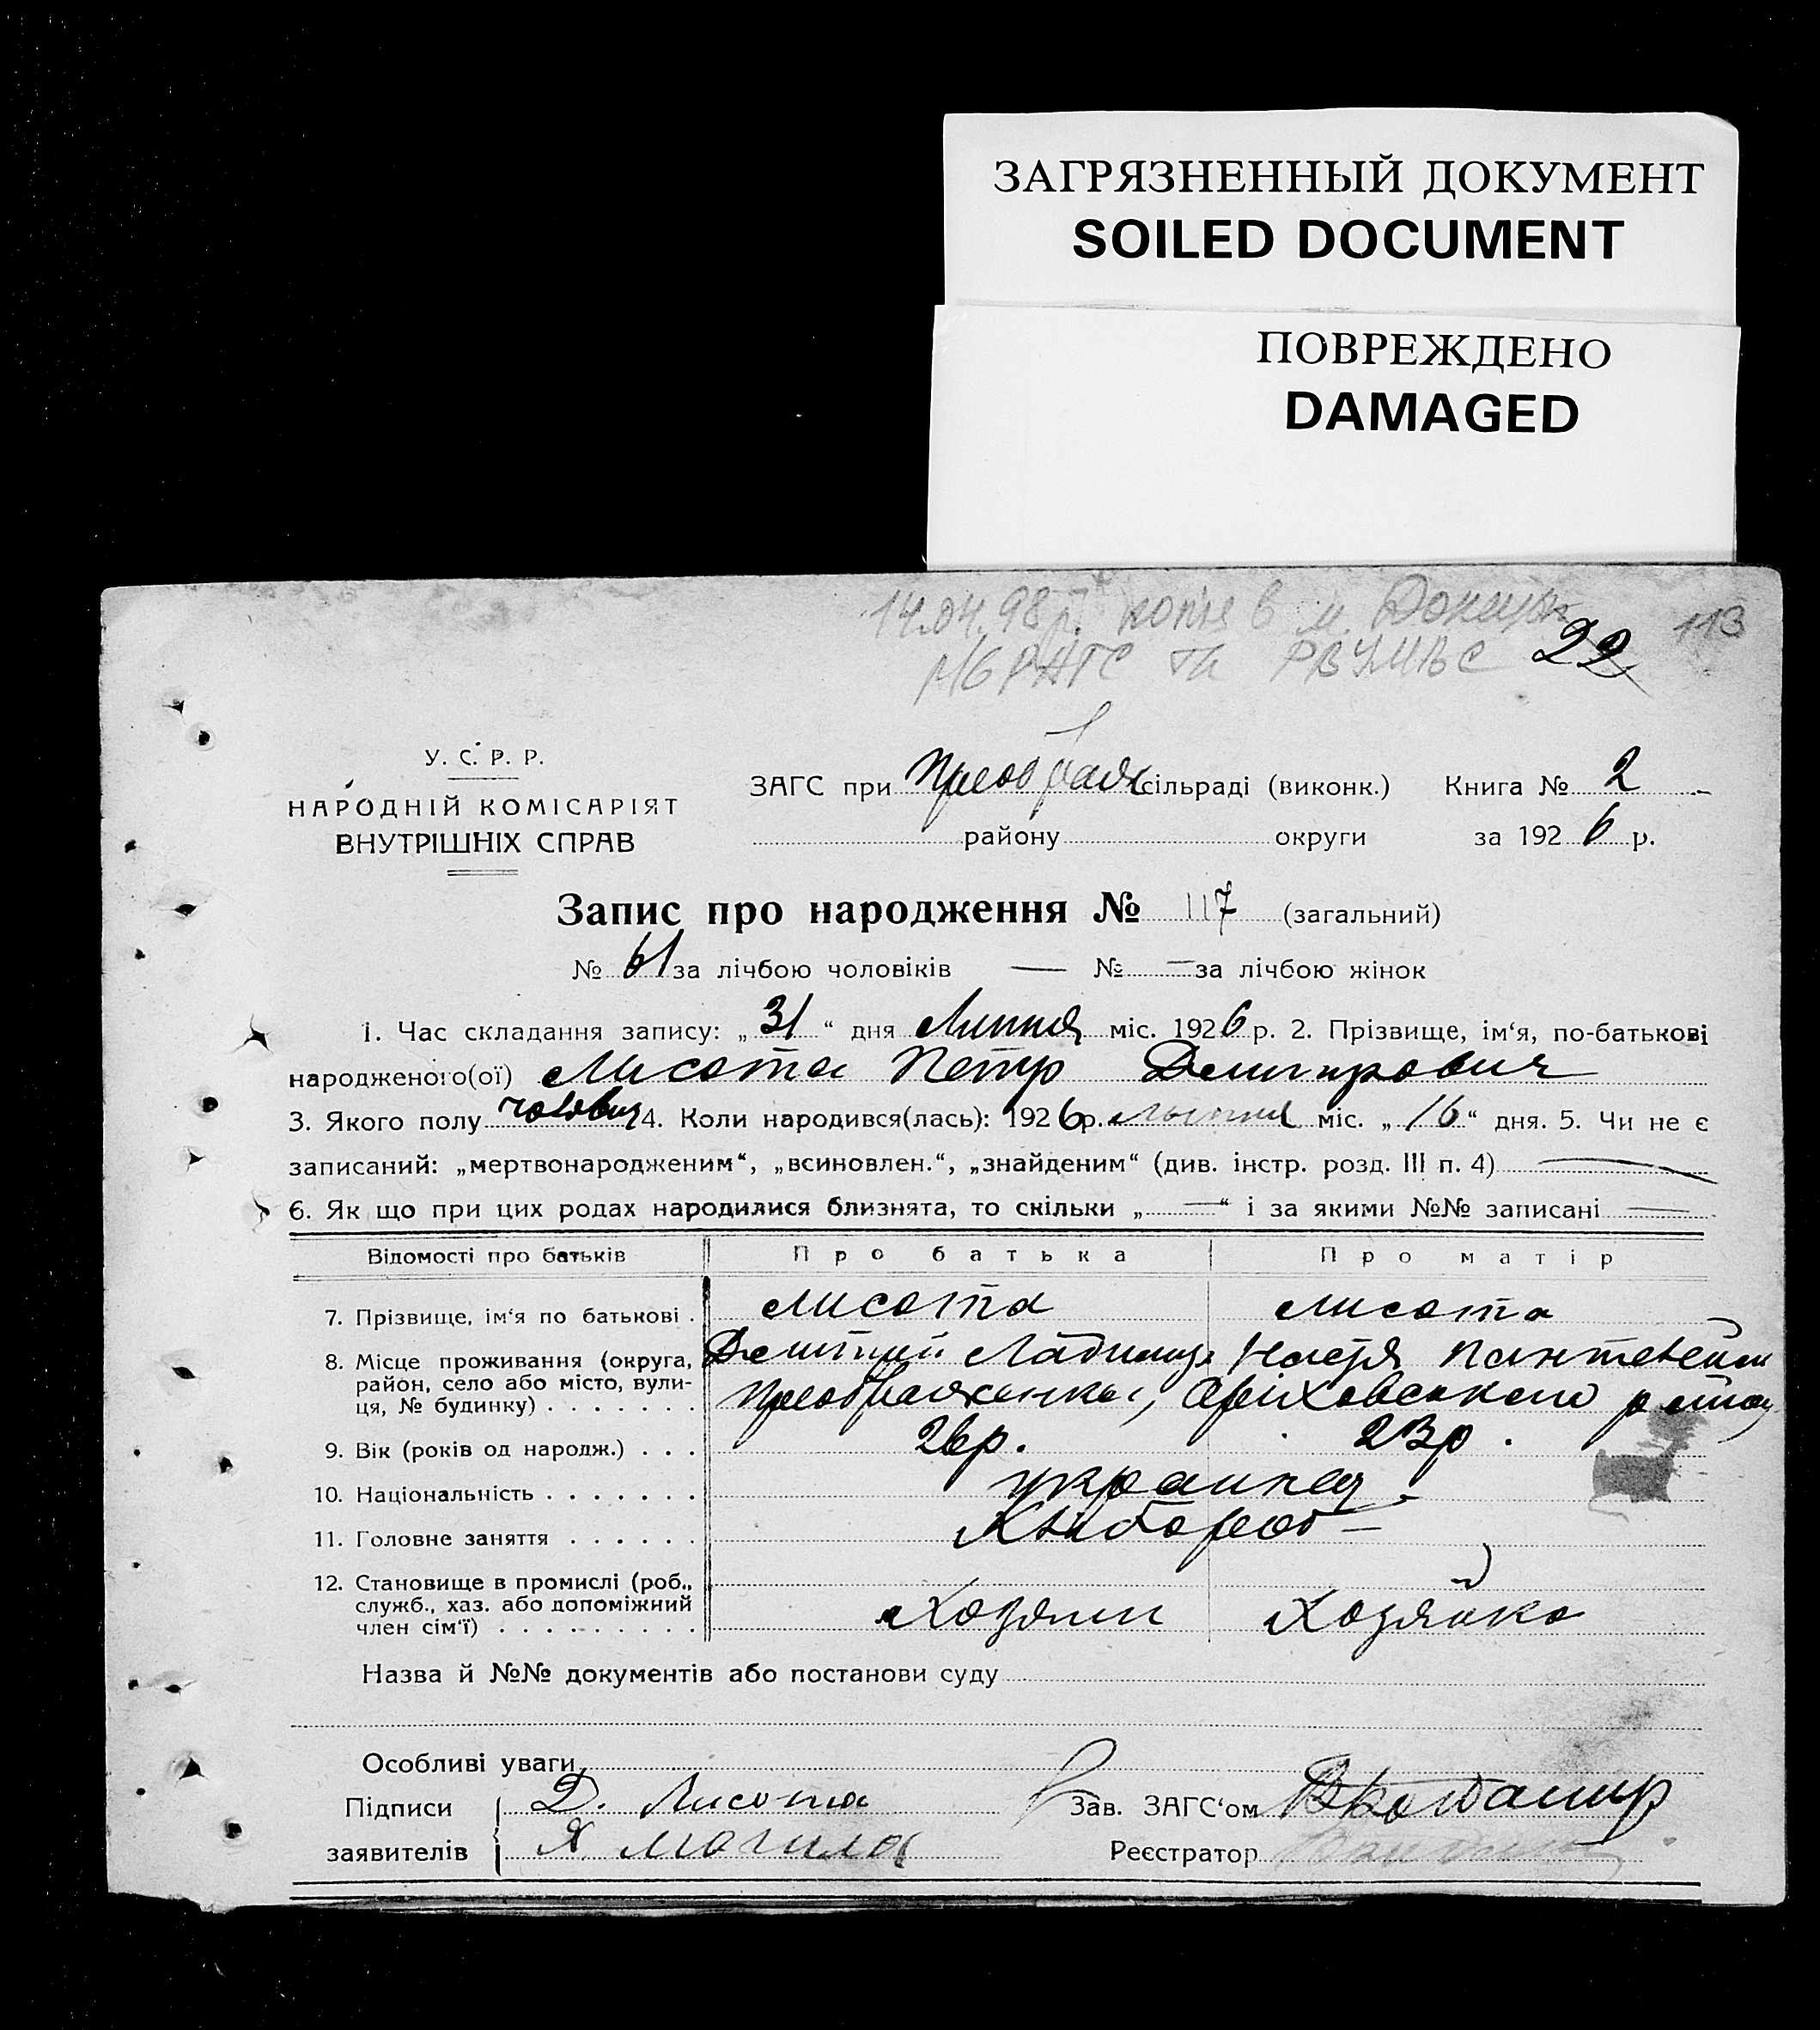 ЗАГРЯЗНЕННЫЙ ДОКУМЕНТ
SOILED DOCUMENT
ПОВРЕЖДЕНО
DAMAGED
14.04.98р. копія в м. Донецьк 113
МБРАГС та РВУМВС 22
У. С. Р. Р.
НАРОДНІЙ КОМІСАРІЯТ
ВНУТРІШНІХ СПРАВ
ЗАГС при Преображ сільраді (виконк.) Книга № 2
району округи за 1926 р.
Запис про народження № 117 (загальний)
№ 61 за лічбою чоловіків — № — за лічбою жінок
1. Час складання запису: „31“ дня Липня міс. 1926 р. 2. Прізвище, ім‘я, по-батькові
народженого(ої) Лисота Петр Дмитрович
3. Якого полу чоловіч 4. Коли народився(лась): 1926 р. липня міс. „16“ дня. 5. Чи не є
записаний: „мертвонародженим“, „всиновлен.“, „знайденим“ (див. інстр. розд. III п. 4) —
6. Як що при цих родах народилися близнята, то скільки „—“ і за якими №№ записані —
Відомості про батьків Про батька Про матір
7. Прізвище, ім‘я по батькові . Лисота Лисота
8. Місце проживання (округа, Дмитрий Настя
район, село або місто, вули-
ця, № будинку) . . . . . . . Преображенка, Оріховського
9. Вік (років од народж.) . . . 26р. 23р.
10. Національність . . . . . . . украинец
11. Головне заняття . . . . . . Хлібороб —
12. Становище в промислі (роб.,
служб., хаз. або допоміжний
член сім‘ї) . . . . . . . . . . Хозяин Хозяйка
Назва й №№ документів або постанови суду
Особливі уваги
Підписи Д. Лисота Зав. ЗАГС‘ом
заявителів Я. Могила Реєстратор